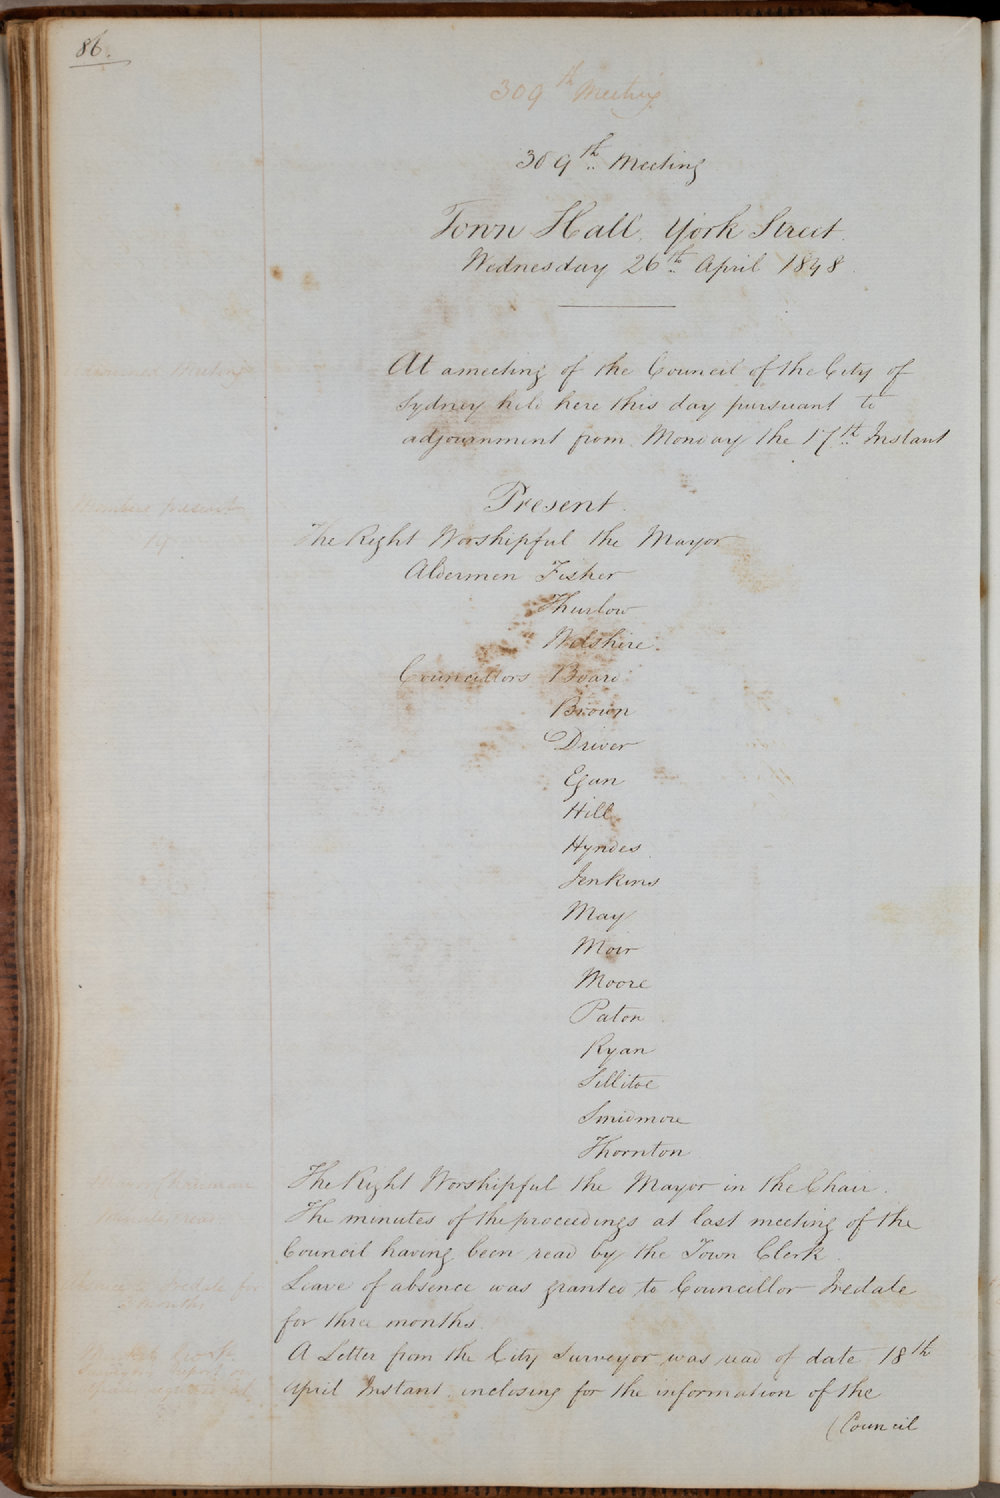 86.
309th Meeting
309th Meeting
Town Hall, York Street.
Wednesday 26th April 1848.
Meeting
At a meeting of the Council of the City of
Sydney held here this day pursuant to
adjournment from Monday the 17th Instant
Members present
19
Present.
The Right Worshipful the Mayor
Aldermen Fisher
Thurlow
Wilshire.
Councillors Board
Brown
Driver
Egan
Hill
Hyndes
Jenkins
May
Moir
Moore
Paton
Ryan
Sillitoe
Smidmore
Thornton
Chairman
The Right Worshipful the Mayor in the Chair.
Minutes read
The minutes of the proceedings at last meeting of the
Council having been read by the Town Clerk.
for
3 months
Leave of absence was granted to Councillor Iredale
for three months.
A Letter from the City Surveyor was read of date 18th
April Instant inclosing for the information of the
(Council